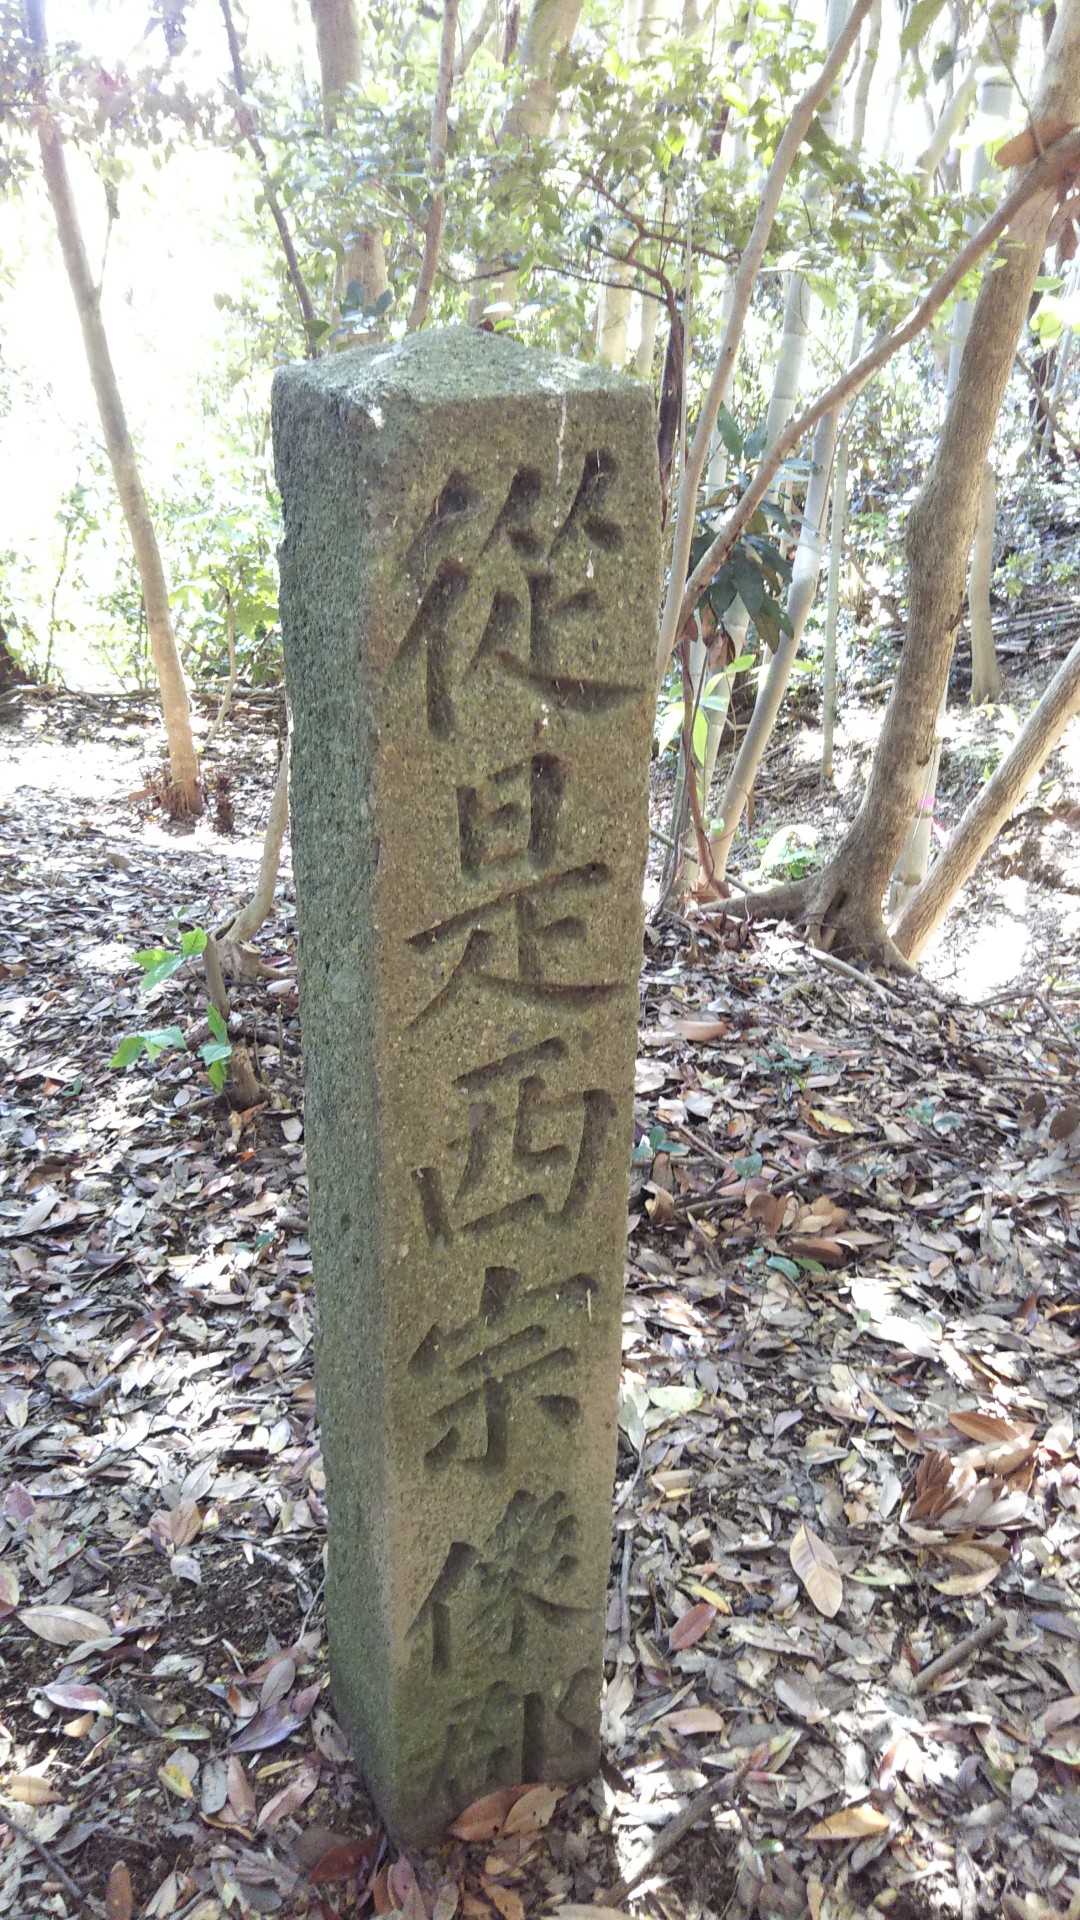 從是西宗像郡